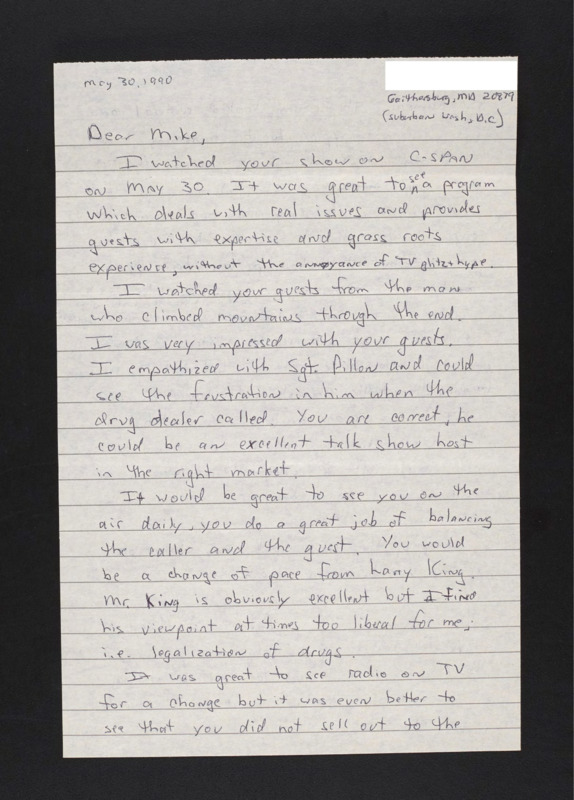 May 30, 1990
Gaithersburg, MD 20879
(suburban Wash, D.C)
Dear Mike,
I watched your show on C-SPAN
on May 30. It was great to see a program
which deals with real issues and provides
guests with expertise and grass roots
experience, without the annoyance of TV glitz + hype.
I watched your guests from the man
who climbed mountains through the end.
I was very impressed with your guests.
I empathized with Sgt. Dillon and could
see the frustration in him when the
drug dealer called. You are correct, he
could be an excellent talk show host
in the right market.
It would be great to see you on the
air daily, you do a great job of balancing
the caller and the guest. You would
be a change of pace from Larry King.
Mr. King is obviously excellent but I find
his viewpoint at times too liberal for me;
i.e. legalization of drugs.
It was great to see radio on TV
for a change but it was even better to
see that you did not sell out to the